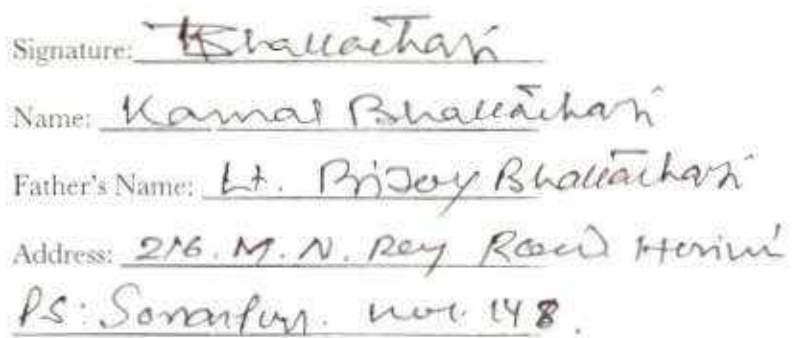 Signature: KBhattachari
Name: Kamal Bhattachari
Father's Name: Lt. Bijoy Bhattachari
Address: 276. M. N. Roy Road
PS: Sonarpur. 148.